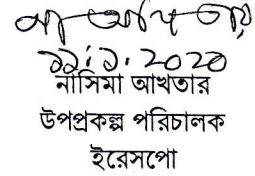 ১১.১.2020
নাসিমা আখতার
উপপ্রকল্প পরিচালক
ইরেসপো